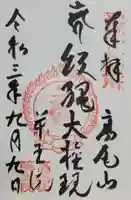 奉拝
高尾山
飯縄大権現
薬王院
令和三年九月九日